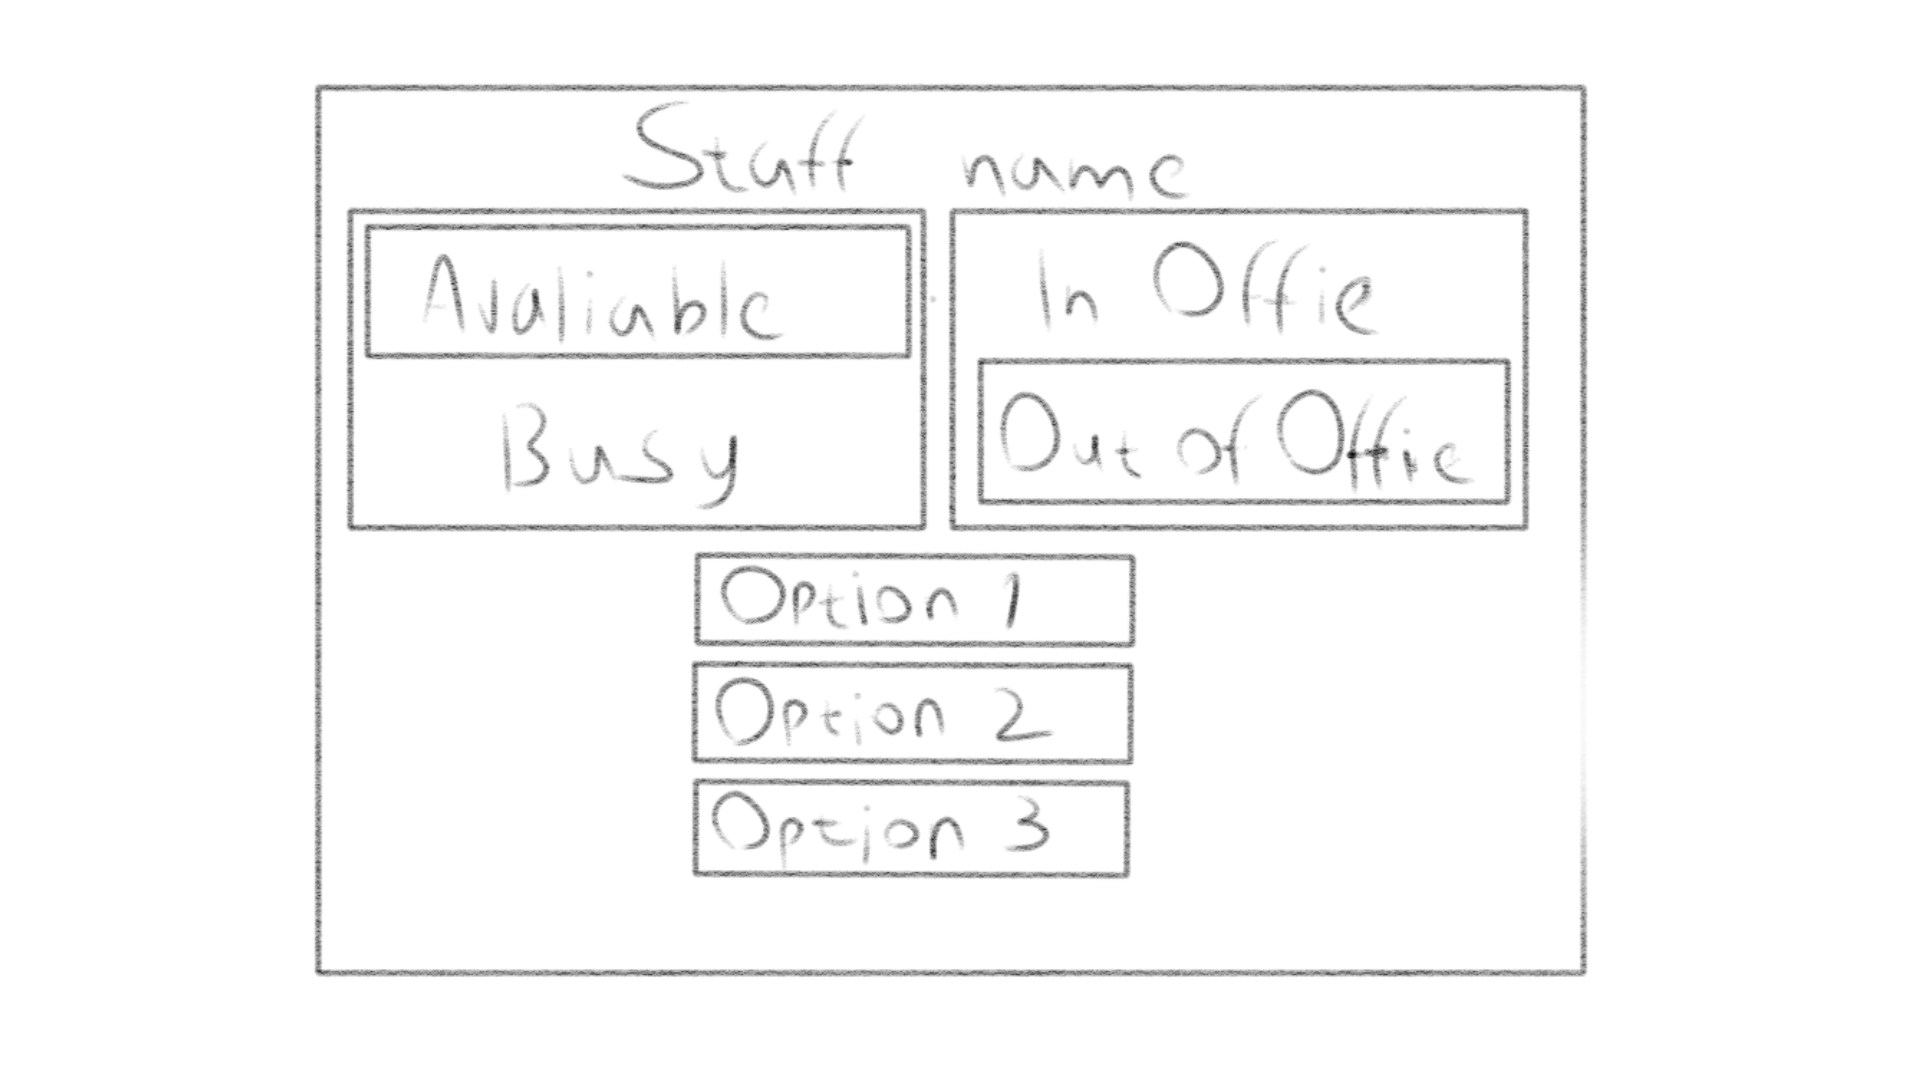 Staff name
Avaliable
Busy
In Offie
Out of Offie
Option 1
Option 2
Option 3